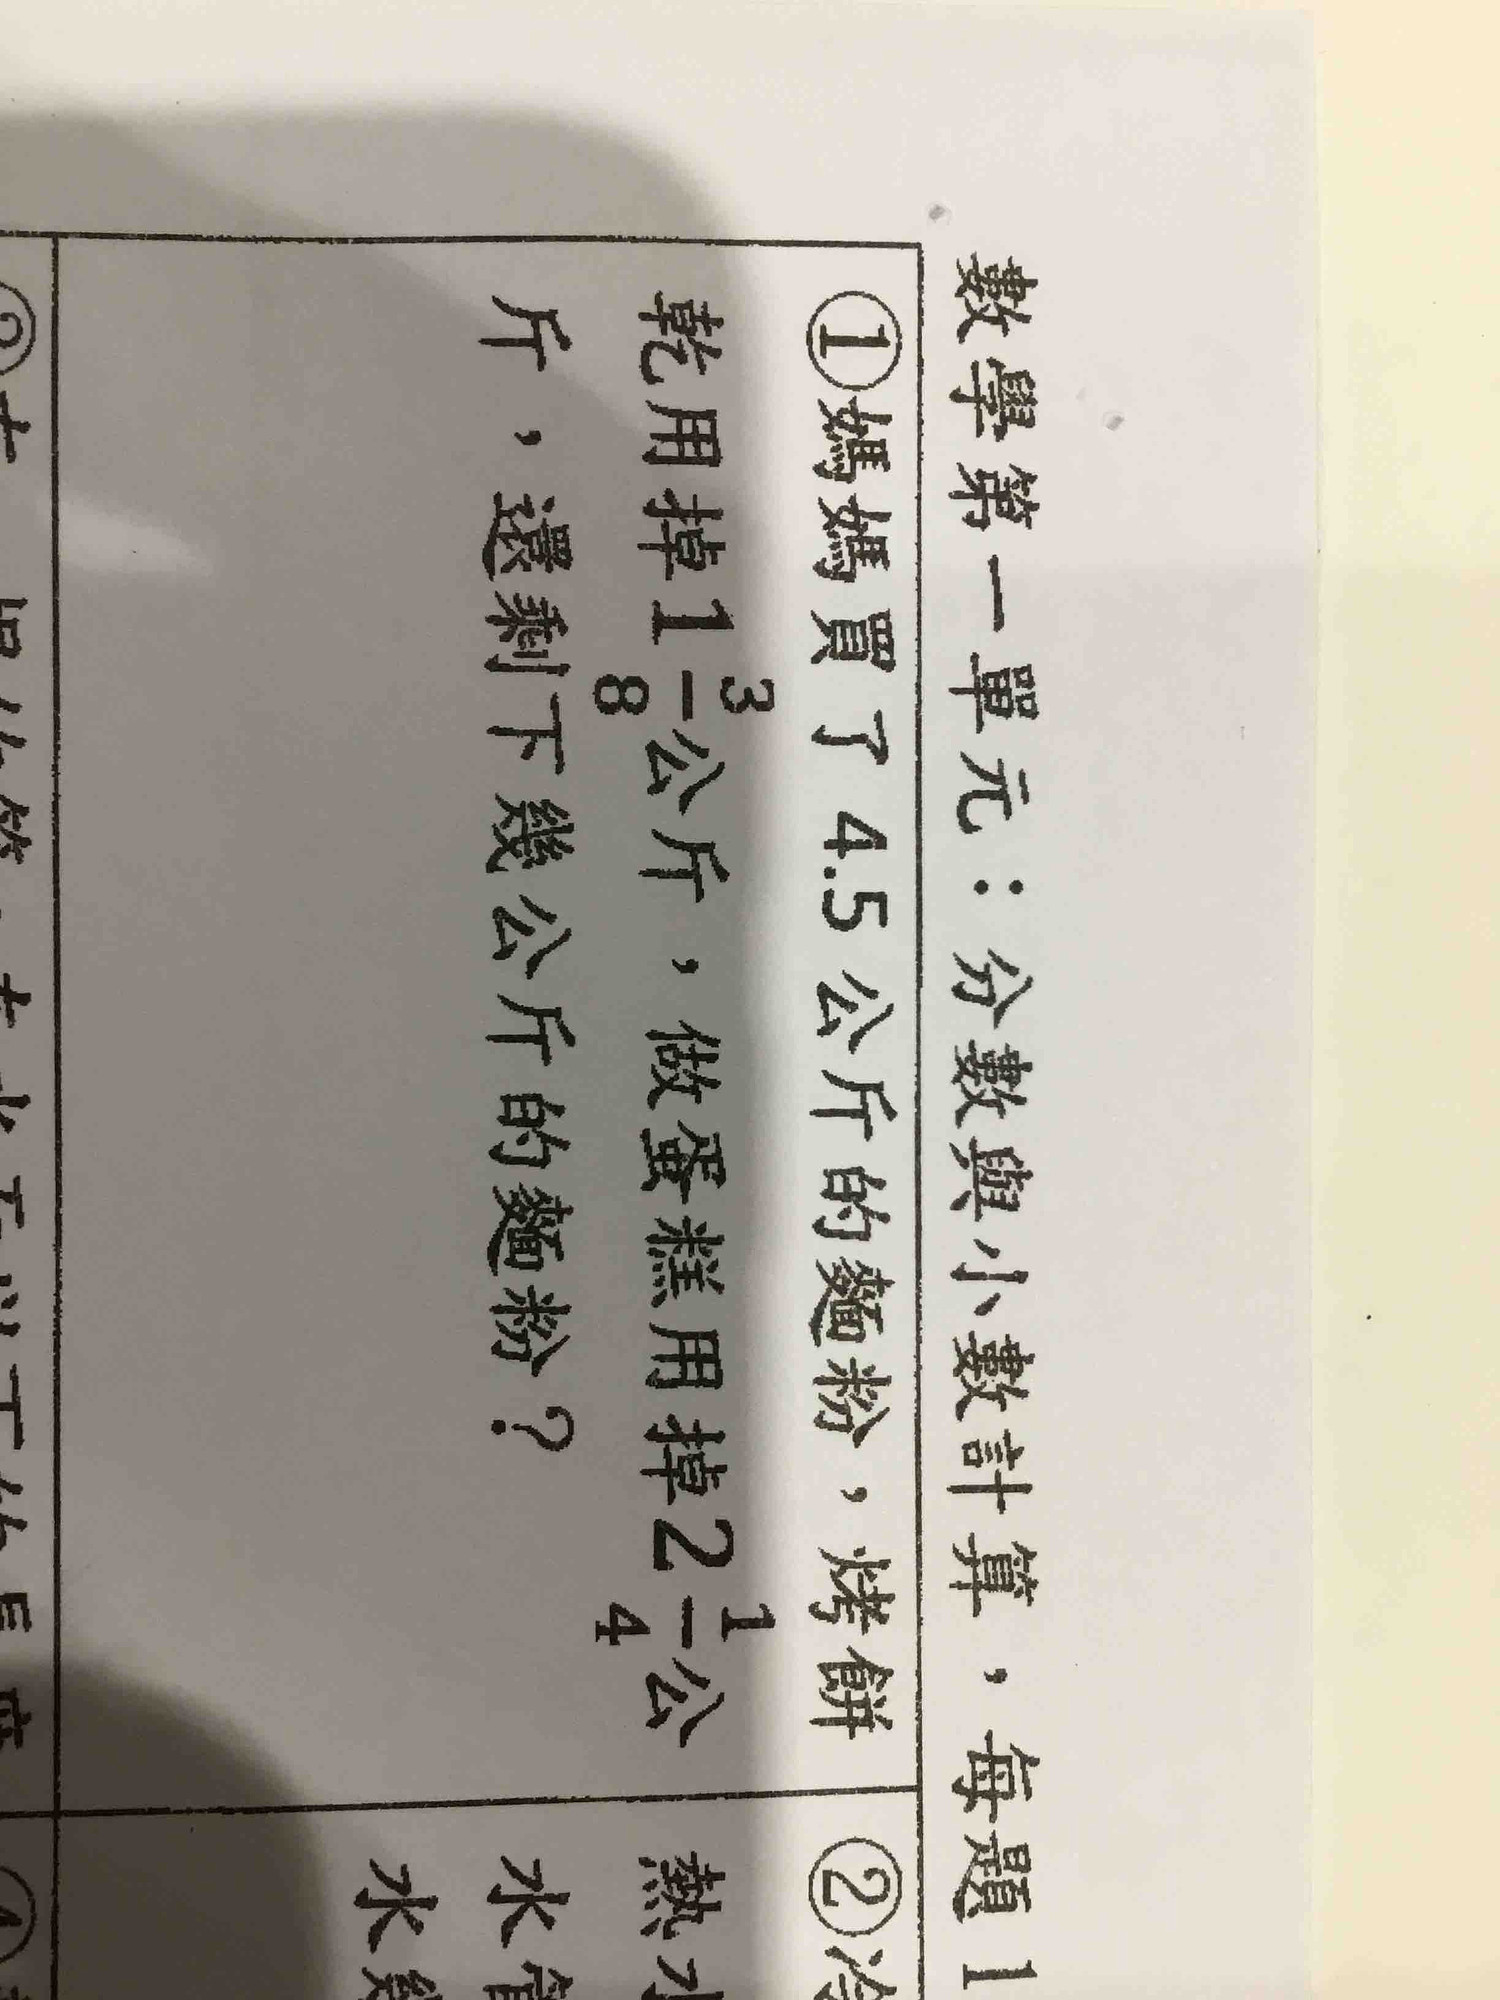 數學第一單元：分數與小數計算，每題1
①媽媽買了 4.5 公斤的麵粉，烤餅
乾用掉1 3/8 公斤，做蛋糕用掉2 1/4 公
斤，還剩下幾公斤的麵粉？
②冷
熱水
水管
水